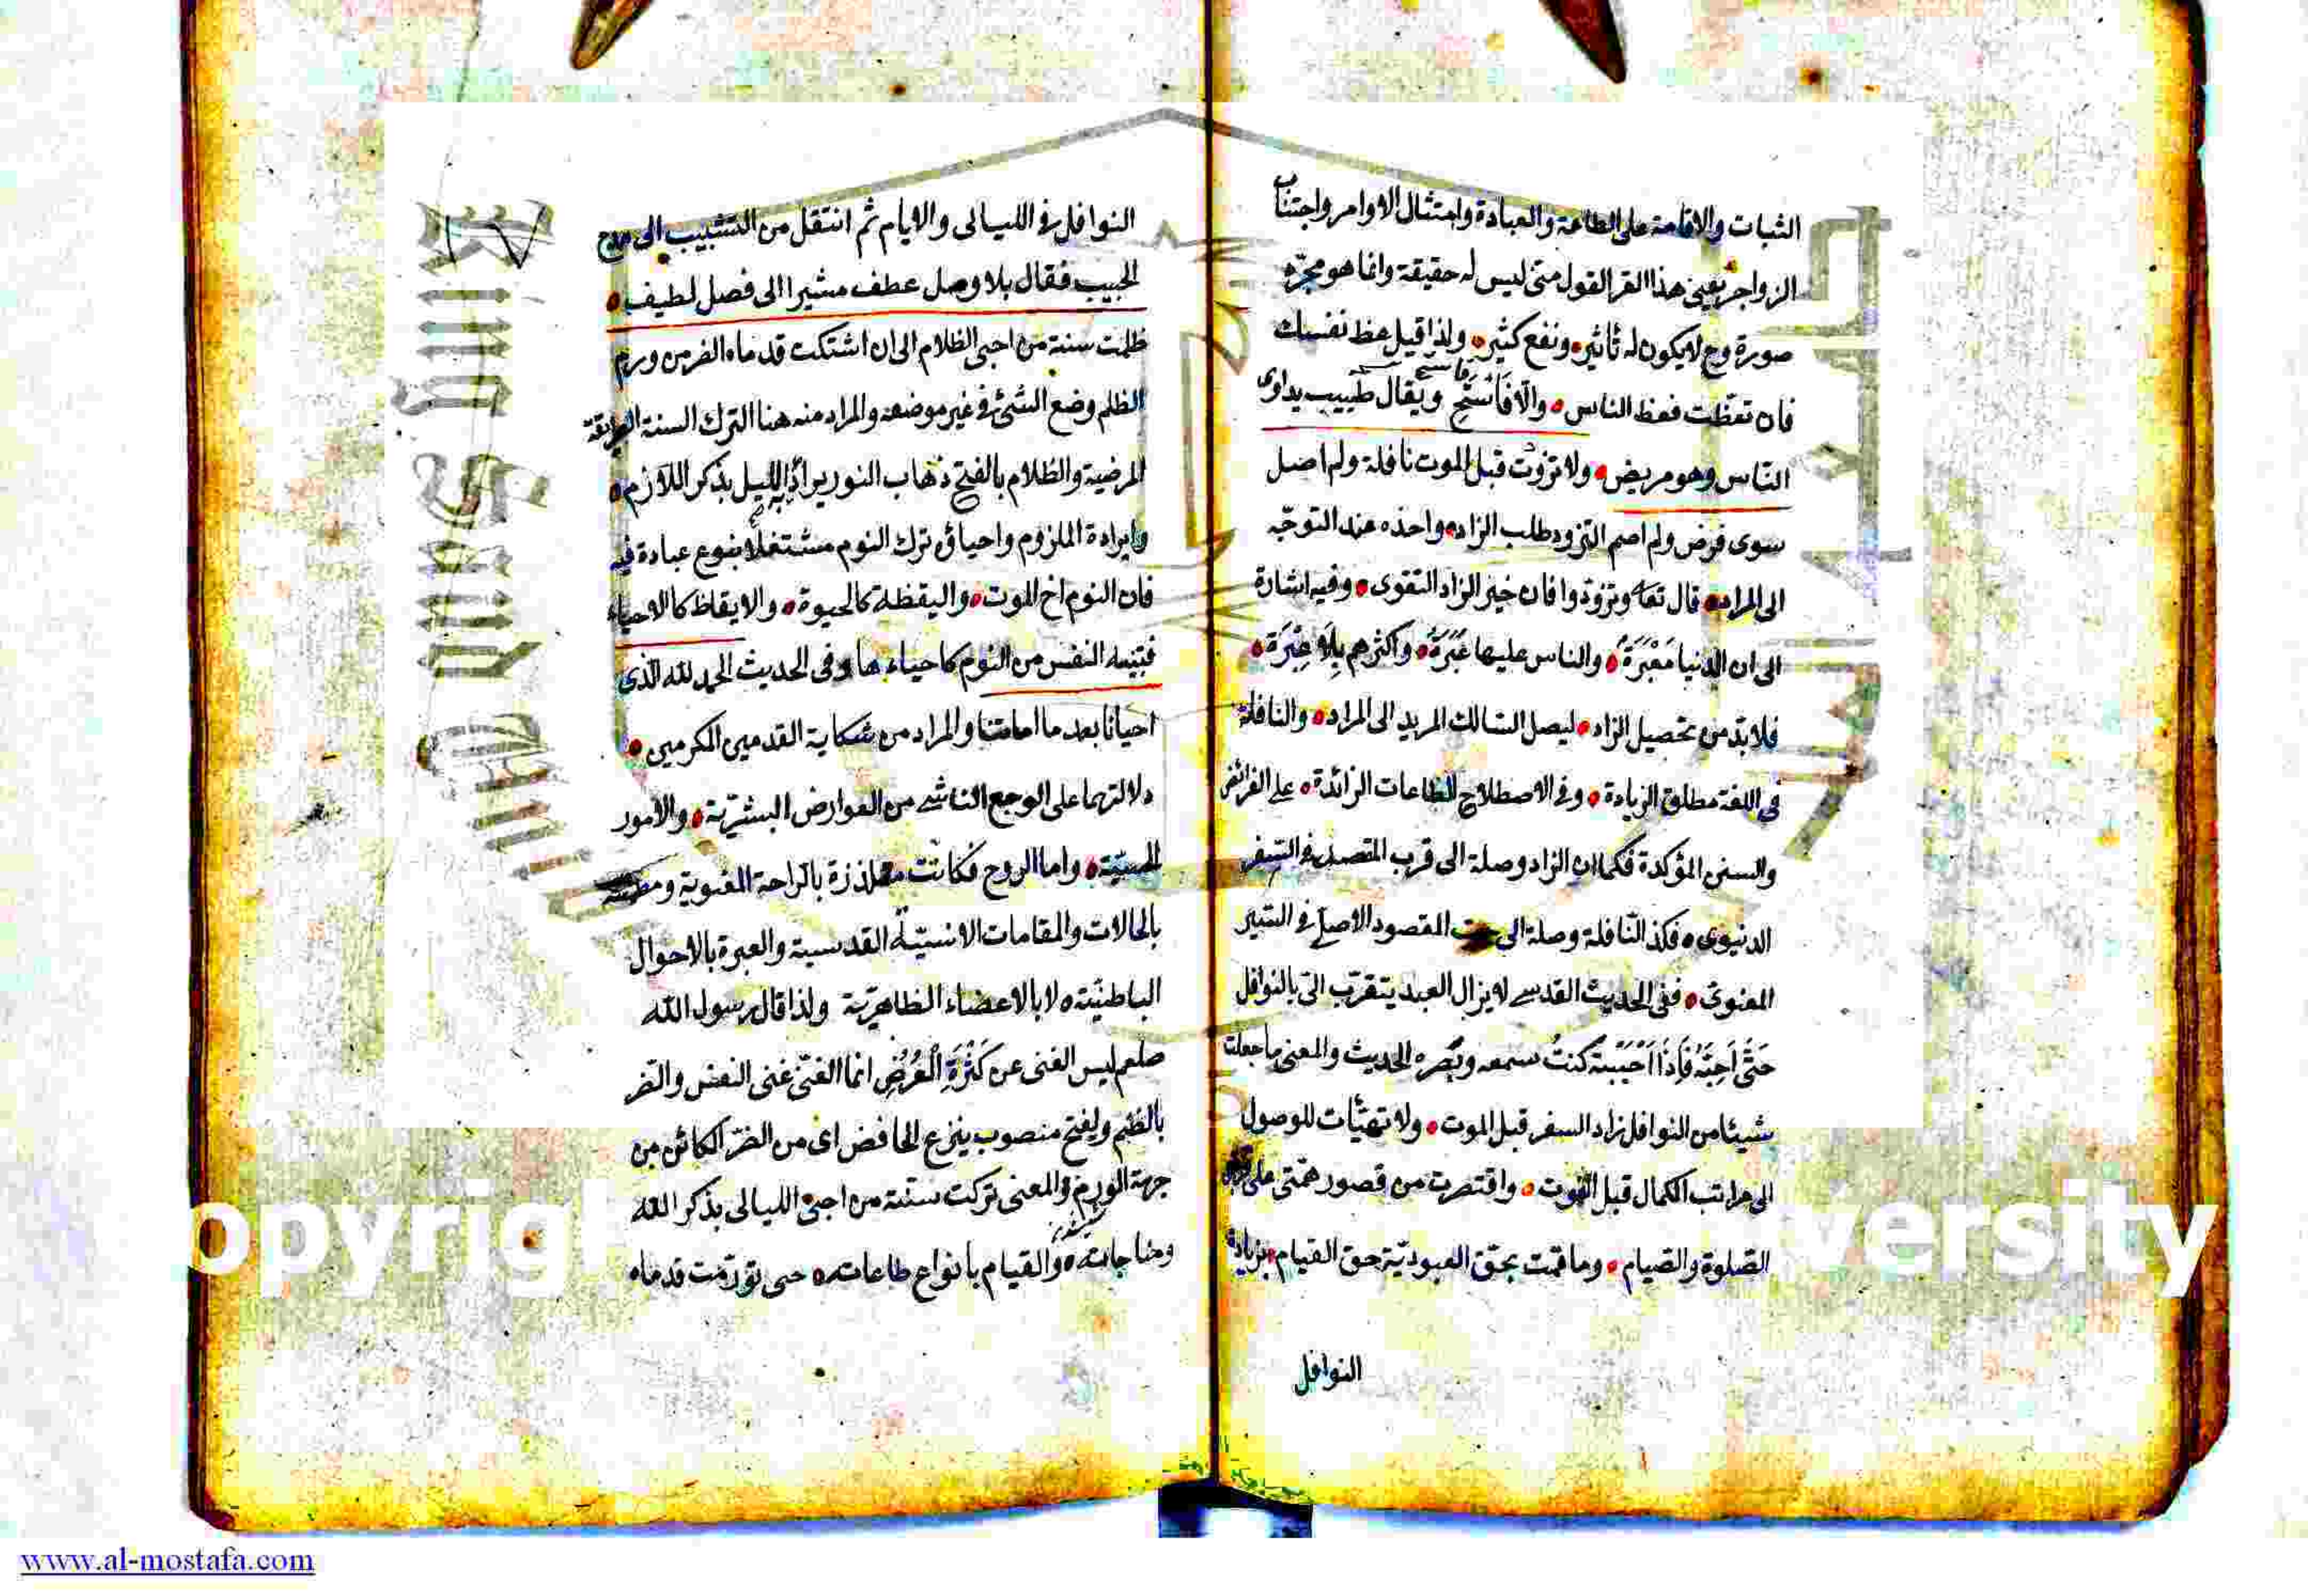 الثبات والاقامة على الطاعة والعبادة وامتثال الاوامر واجتناب
الزواجر يعنى هذا القول متى ليس له حقيقة وانما هو مجرّد
صورة وح لا يكون له تأثير ونفع كثير ولذا قيل عظ نفسك
فان تعظت فعظ الناس والّا فَاسْتَحِ ويقال طبيب يداوى
النّاس وهو مريض ولا تزوّدت قبل الموت نافلة ولم اصل
سوى فرض ولم اصم التزود طلب الزاد واخذه عند التوجّه
الى المراد قال تعا وتزوّدوا فان خير الزاد التقوى وفيه اشارة
الى ان الدنيا مَعْبَرَة والناس عليها عَبَرَةٌ واكثرهم بِلَا عِبْرَة
فلا بدّ من تحصيل الزاد ليصل السالك المريد الى المراد والنافلة
فى اللغة مطلق الزيادة وفى الاصطلاح الطاعات الزائدة على الفرائض
والسنن المؤكدة فكما ان الزاد وصلة الى قرب المقصد فى السفر
الدنيوى فكذا النّافلة وصلة الى المقصود الاصلى فى السّير
المعنوىّ ففى الحديث القدسى لا يزال العبد يتقرّب الىّ بالنوافل
حَتّى اُحِبَّهُ فَاِذَا اَحْبَبْتهُ كُنتُ سمعه وبصره الحديث والمعنى ما جعلت
شيئا من النوافل زاد السفر قبل الموت ولا تهيّأت للوصول
الى مراتب الكمال قبل الفوت واقتصرت من قصور همّتى على
الصّلوة والصيام وما قمت بحقّ العبوديّة حق القيام بزيادة
النوافل
النوافل فى الليالى والايام ثم انتقل من التشبيب الى مدح
الحبيب فقال بلا وصل عطف مشيرا الى فصل لطيف
ظلمت سنة من احيى الظلام الى ان اشتكت قدماه الضر من ورم
الظلم وضع الشئ فى غير موضعه والمراد منه هنا الترك السنة الطريقة
المرضية والظلام بالفتح ذهاب النور يراد به الليل بذكر اللازم
وارادة الملزوم واحياؤه ترك النوم مشتغلا بنوع عبادة فيه
فان النوم اخ الموت واليقظة كالحيوة والايقاظ كالاحياء
فتنبيه النفس من النوم كاحياءها وفى الحديث الحمد لله الذى
احيانا بعد ما اماتنا والمراد من شكاية القدمين المكرمين
دلالتهما على الوجع الناشى من العوارض البشريّة والامور
الحسيّة واما الروح فكانت متلذذة بالراحة المعنوية
بالحالات والمقامات الانسيّة القدسية والعبرة بالاحوال
الباطنيّة لا بالاعضاء الظاهريّة ولذا قال رسول الله
صلعم ليس الغنى عن كَثْرَةِ الْعُرُضِ انما الغنى غنى النفس والضر
بالضم ويفتح منصوب بنزع الخافض اى من الضرّ الكائن من
جهة الورم والمعنى تركت سنّة من احيى الليالى بذكر الله
ومناجاته والقيام بانواع طاعاته حتى تورّمت قدماه
King Saud
opyrig
versity
www.al-mostafa.com